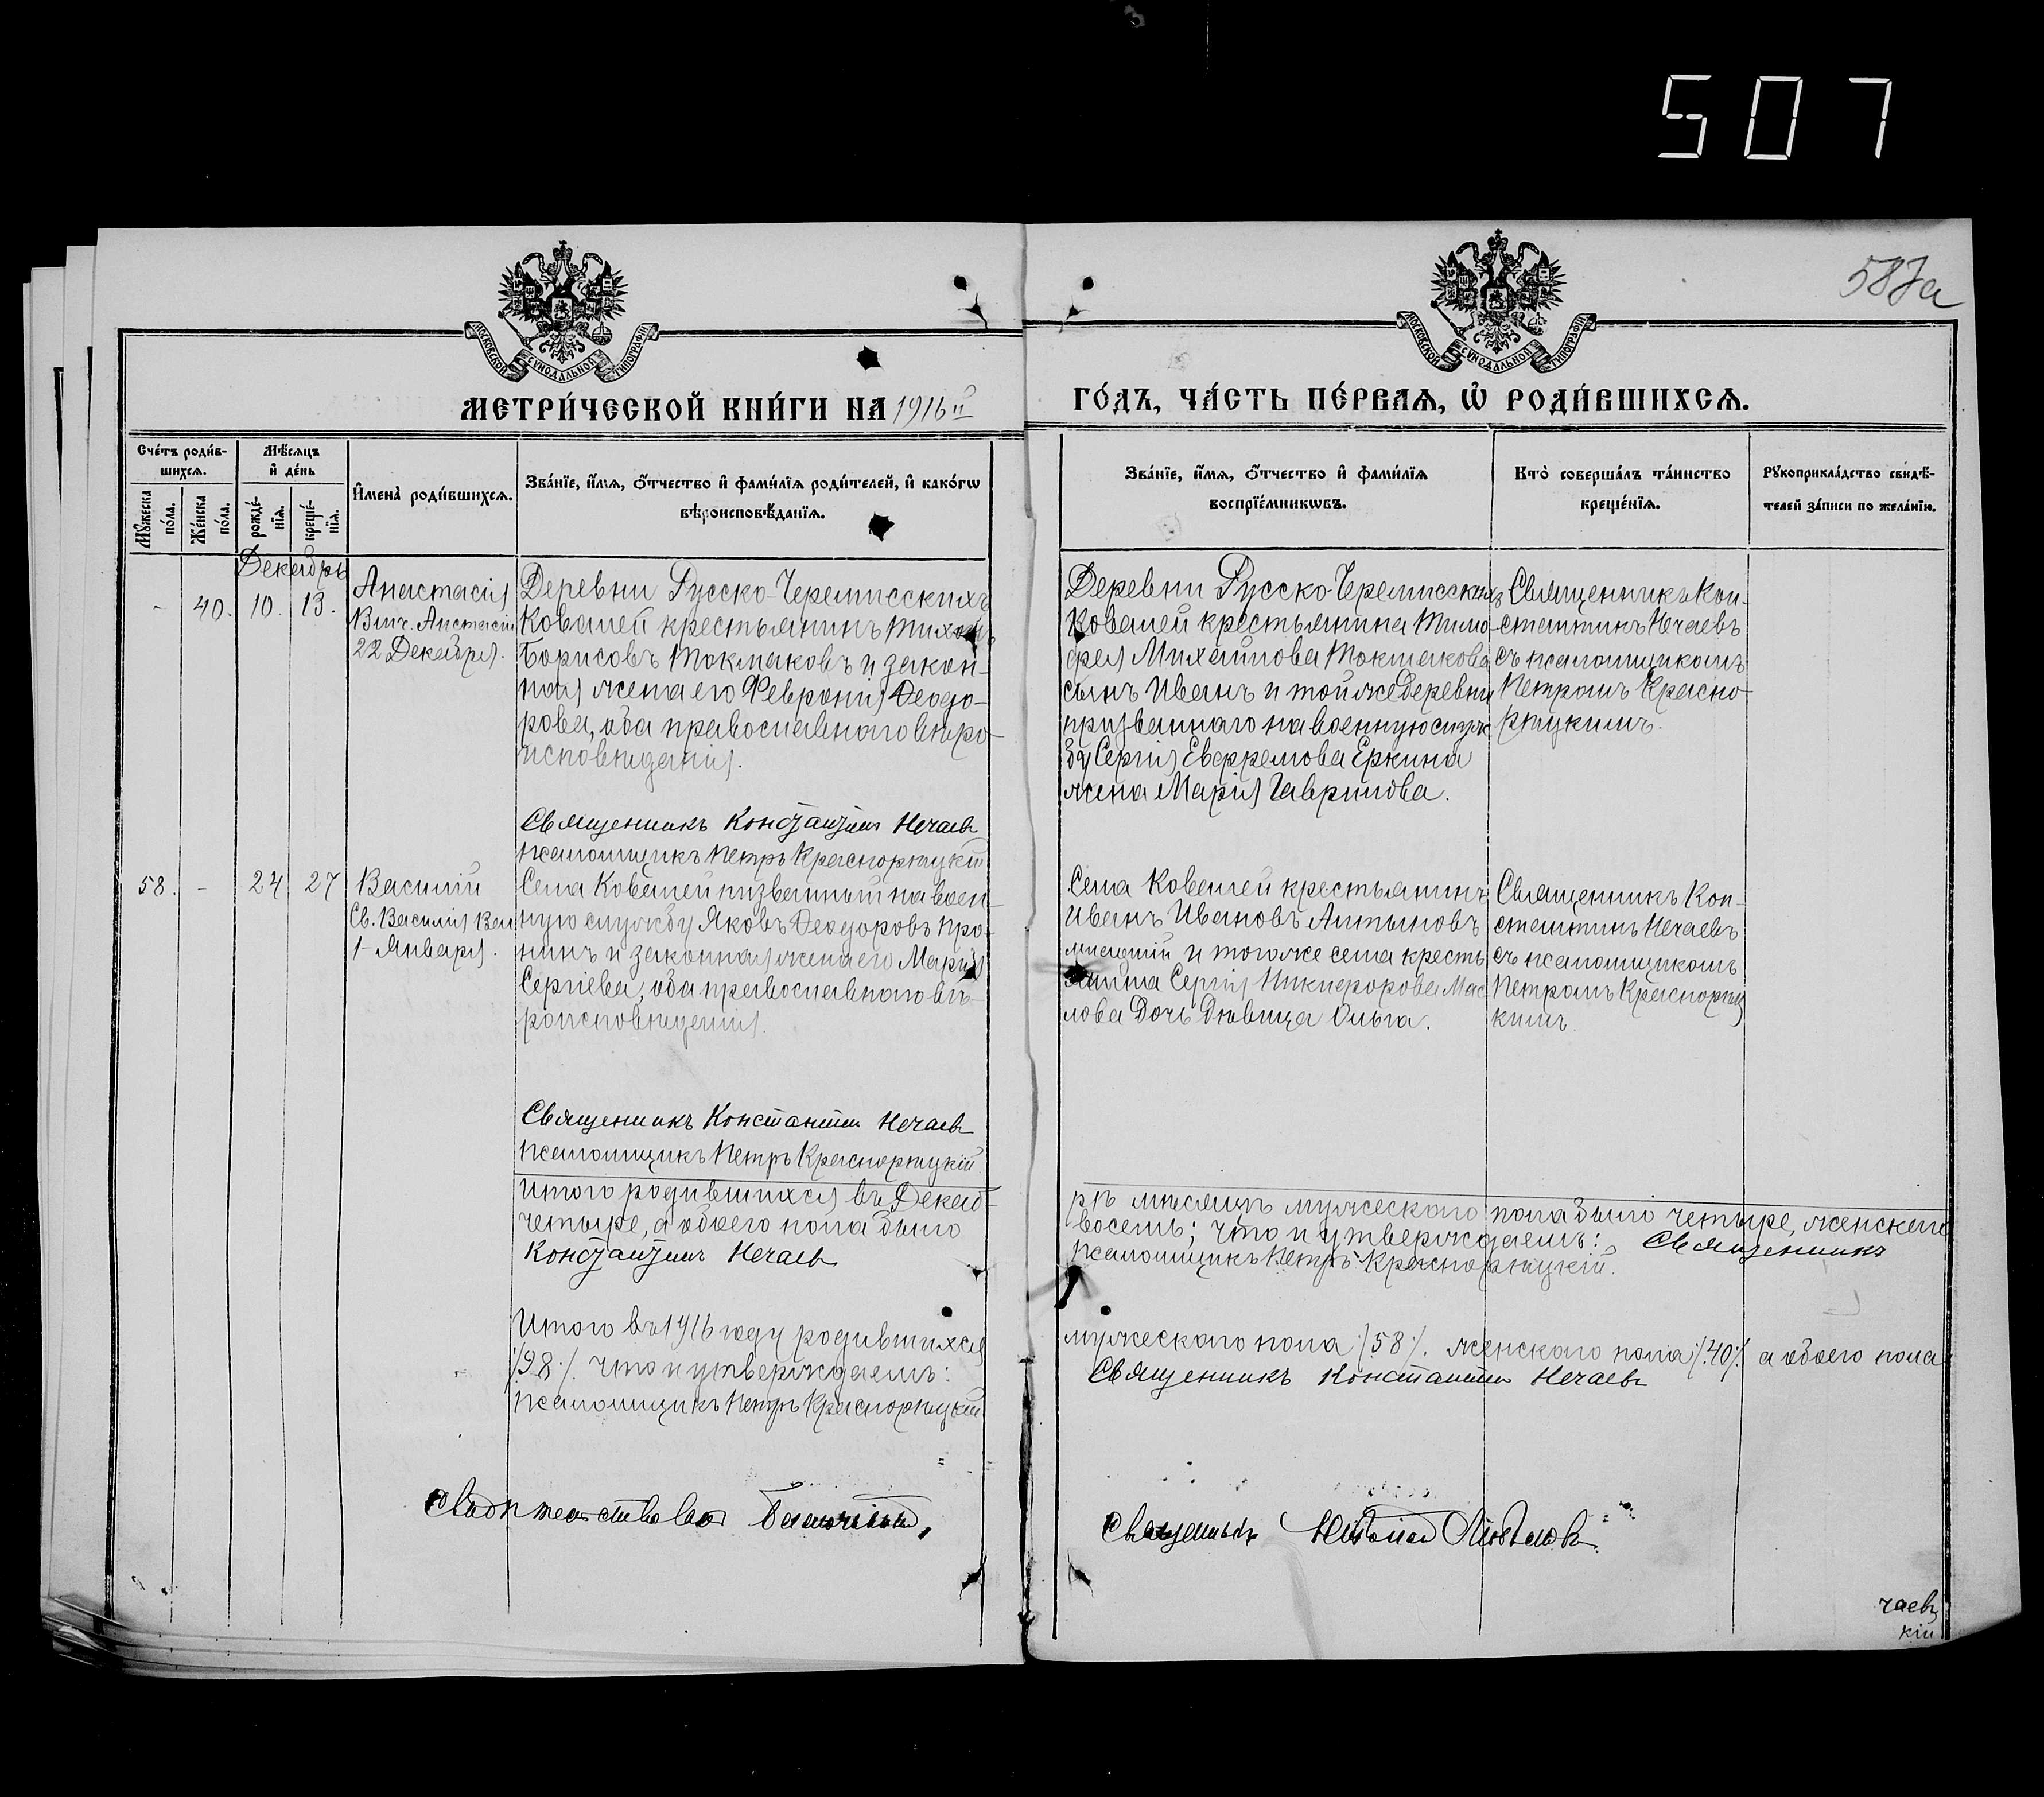 507
587а
МОСКОВСКОЙ СѴНОДАЛЬНОЙ ТИПОГРАФІИ
МОСКОВСКОЙ СѴНОДАЛЬНОЙ ТИПОГРАФІИ
МЕТРИ́ЧЕСКОЙ КНИ́ГИ НА 1916й
ГО́ДЪ, ЧА́СТЬ ПЕ́РВАѦ, Ѡ҆ РОДИ́ВШИХСѦ.
Сче́тъ роди́в-
шихсѧ.
Мꙋ́жеска по́ла.
Же́нска по́ла.
Мѣ́сѧцъ
и҆ де́нь
рожде́-нїѧ.
креще́-нїѧ.
И҆мена̀ роди́вшихсѧ.
Зва́нїе, и҆́мѧ, ѻ҆́тчество и҆ фами́лїѧ роди́телей, и҆ како́гѡ
вѣроисповѣ́данїѧ.
Зва́нїе, и҆́мѧ, ѻ҆́тчество и҆ фами́лїѧ
воспрїе́мникѡвъ.
Кто̀ соверша́лъ та́инство
креще́нїѧ.
Рꙋкоприкла́дство свидѣ́-
телей за́писи по жела́нїю.
Декабрь
- 40. 10. 13.
Анастасія
Вмч. Анастасіи
22 Декабря.
Деревни Русско-Черемисскихъ
Ковалей крестьянинъ Тихонъ
Борисовъ Токмаковъ и закон-
ная жена его Февронія Ѳеодо-
рова, оба православнаго вѣро-
исповѣданія.
Священникъ Константинъ Нечаевъ
Псаломщикъ Петръ Краснорѣцкій
Деревни Русско-Черемисскихъ
Ковалей крестьянина Тимо-
фея Михайлова Токмакова
сынъ Иванъ и той же деревни
призваннаго на военную служ-
бу Сергія Евфремова Еркина
жена Марія Гаврилова.
Священникъ Кон-
стантинъ Нечаевъ
съ псаломщикомъ
Петромъ Красно-
рѣцкимъ.
58. - 24 27
Василій
Св. Василія Вел
1 Января.
Села Ковалей призванный на воен-
ную службу Яковъ Ѳеодоровъ Про-
нинъ и законная жена его Марія
Сергіева, оба православнаго вѣ-
роисповѣданія.
Священникъ Константинъ Нечаевъ
Псаломщикъ Петръ Краснорѣцкій.
Села Ковалей крестьянинъ
Иванъ Ивановъ Алтыновъ
младшій и того же села кресть
янина Сергія Никифорова Мас
лова дочь дѣвица Ольга.
Священникъ Кон-
стантинъ Нечаевъ
съ псаломщикомъ
Петромъ Краснорѣц
кимъ.
Итого родившихся въ Декаб-
рѣ мѣсяцѣ мужескаго пола было четыре, женскаго
четыре, а обоего пола было
восемь; что и утверждаемъ: Священникъ
Константинъ Нечаевъ
Псаломщикъ Петръ Краснорѣцкій.
Итого въ 1916 году родившихся
мужескаго пола /.58./. женскаго пола /.40./. а обоего пола
/.98./. Что и утверждаемъ:
Священникъ Константинъ Нечаевъ
Псаломщикъ Петръ Краснорѣцкій
Свидѣтельствовалъ Благочинный,
Священникъ
чаевъ
кій